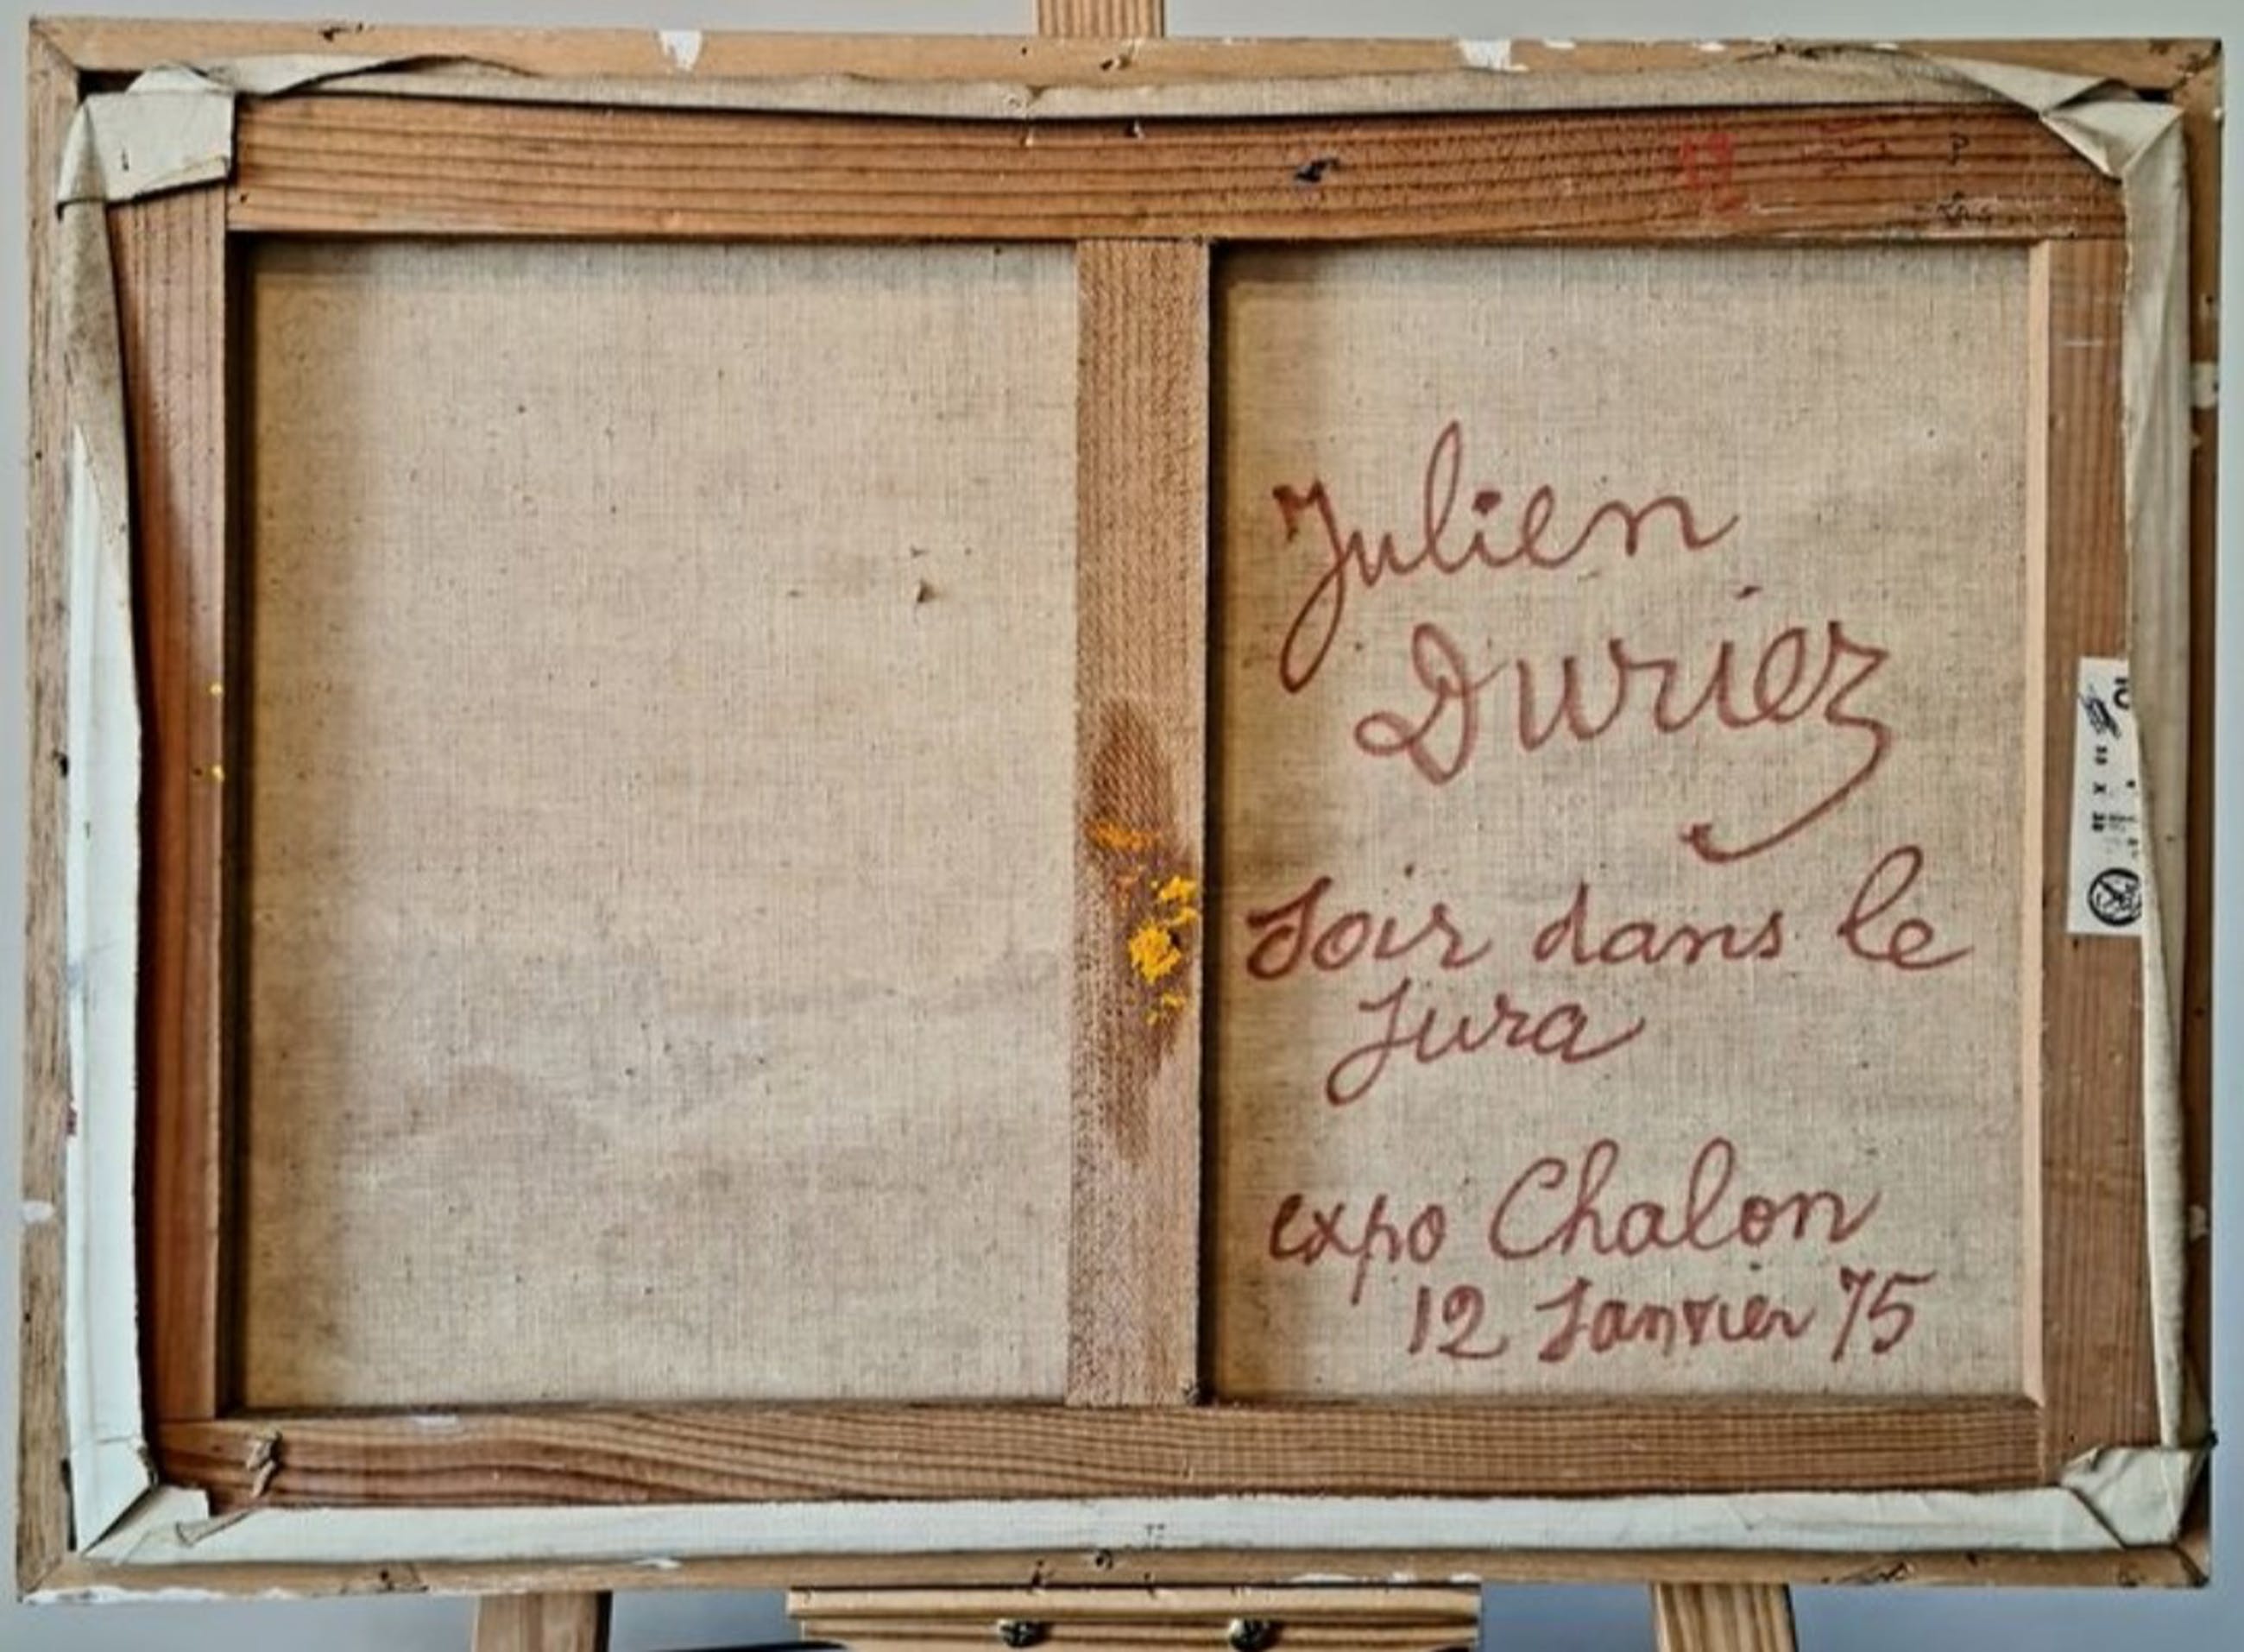 Julien
Duriez
Soir dans le
Jura
expo Chalon
12 Janvier 75